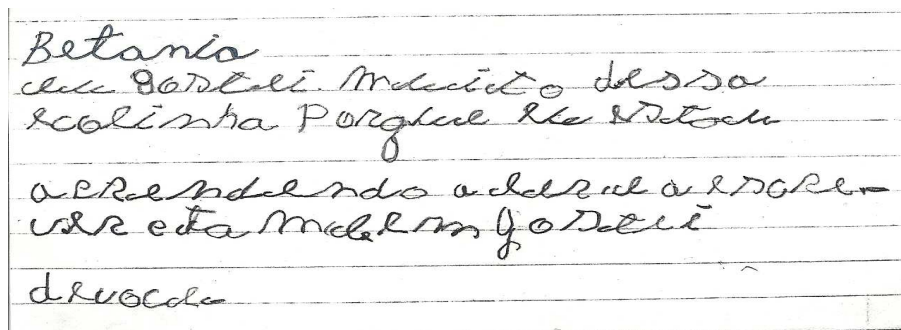 Betania
eu gostei muito dessa
escolinha Porque eu estou
aprendendo a ler e a escre-
ver e tamdem gostei
de você